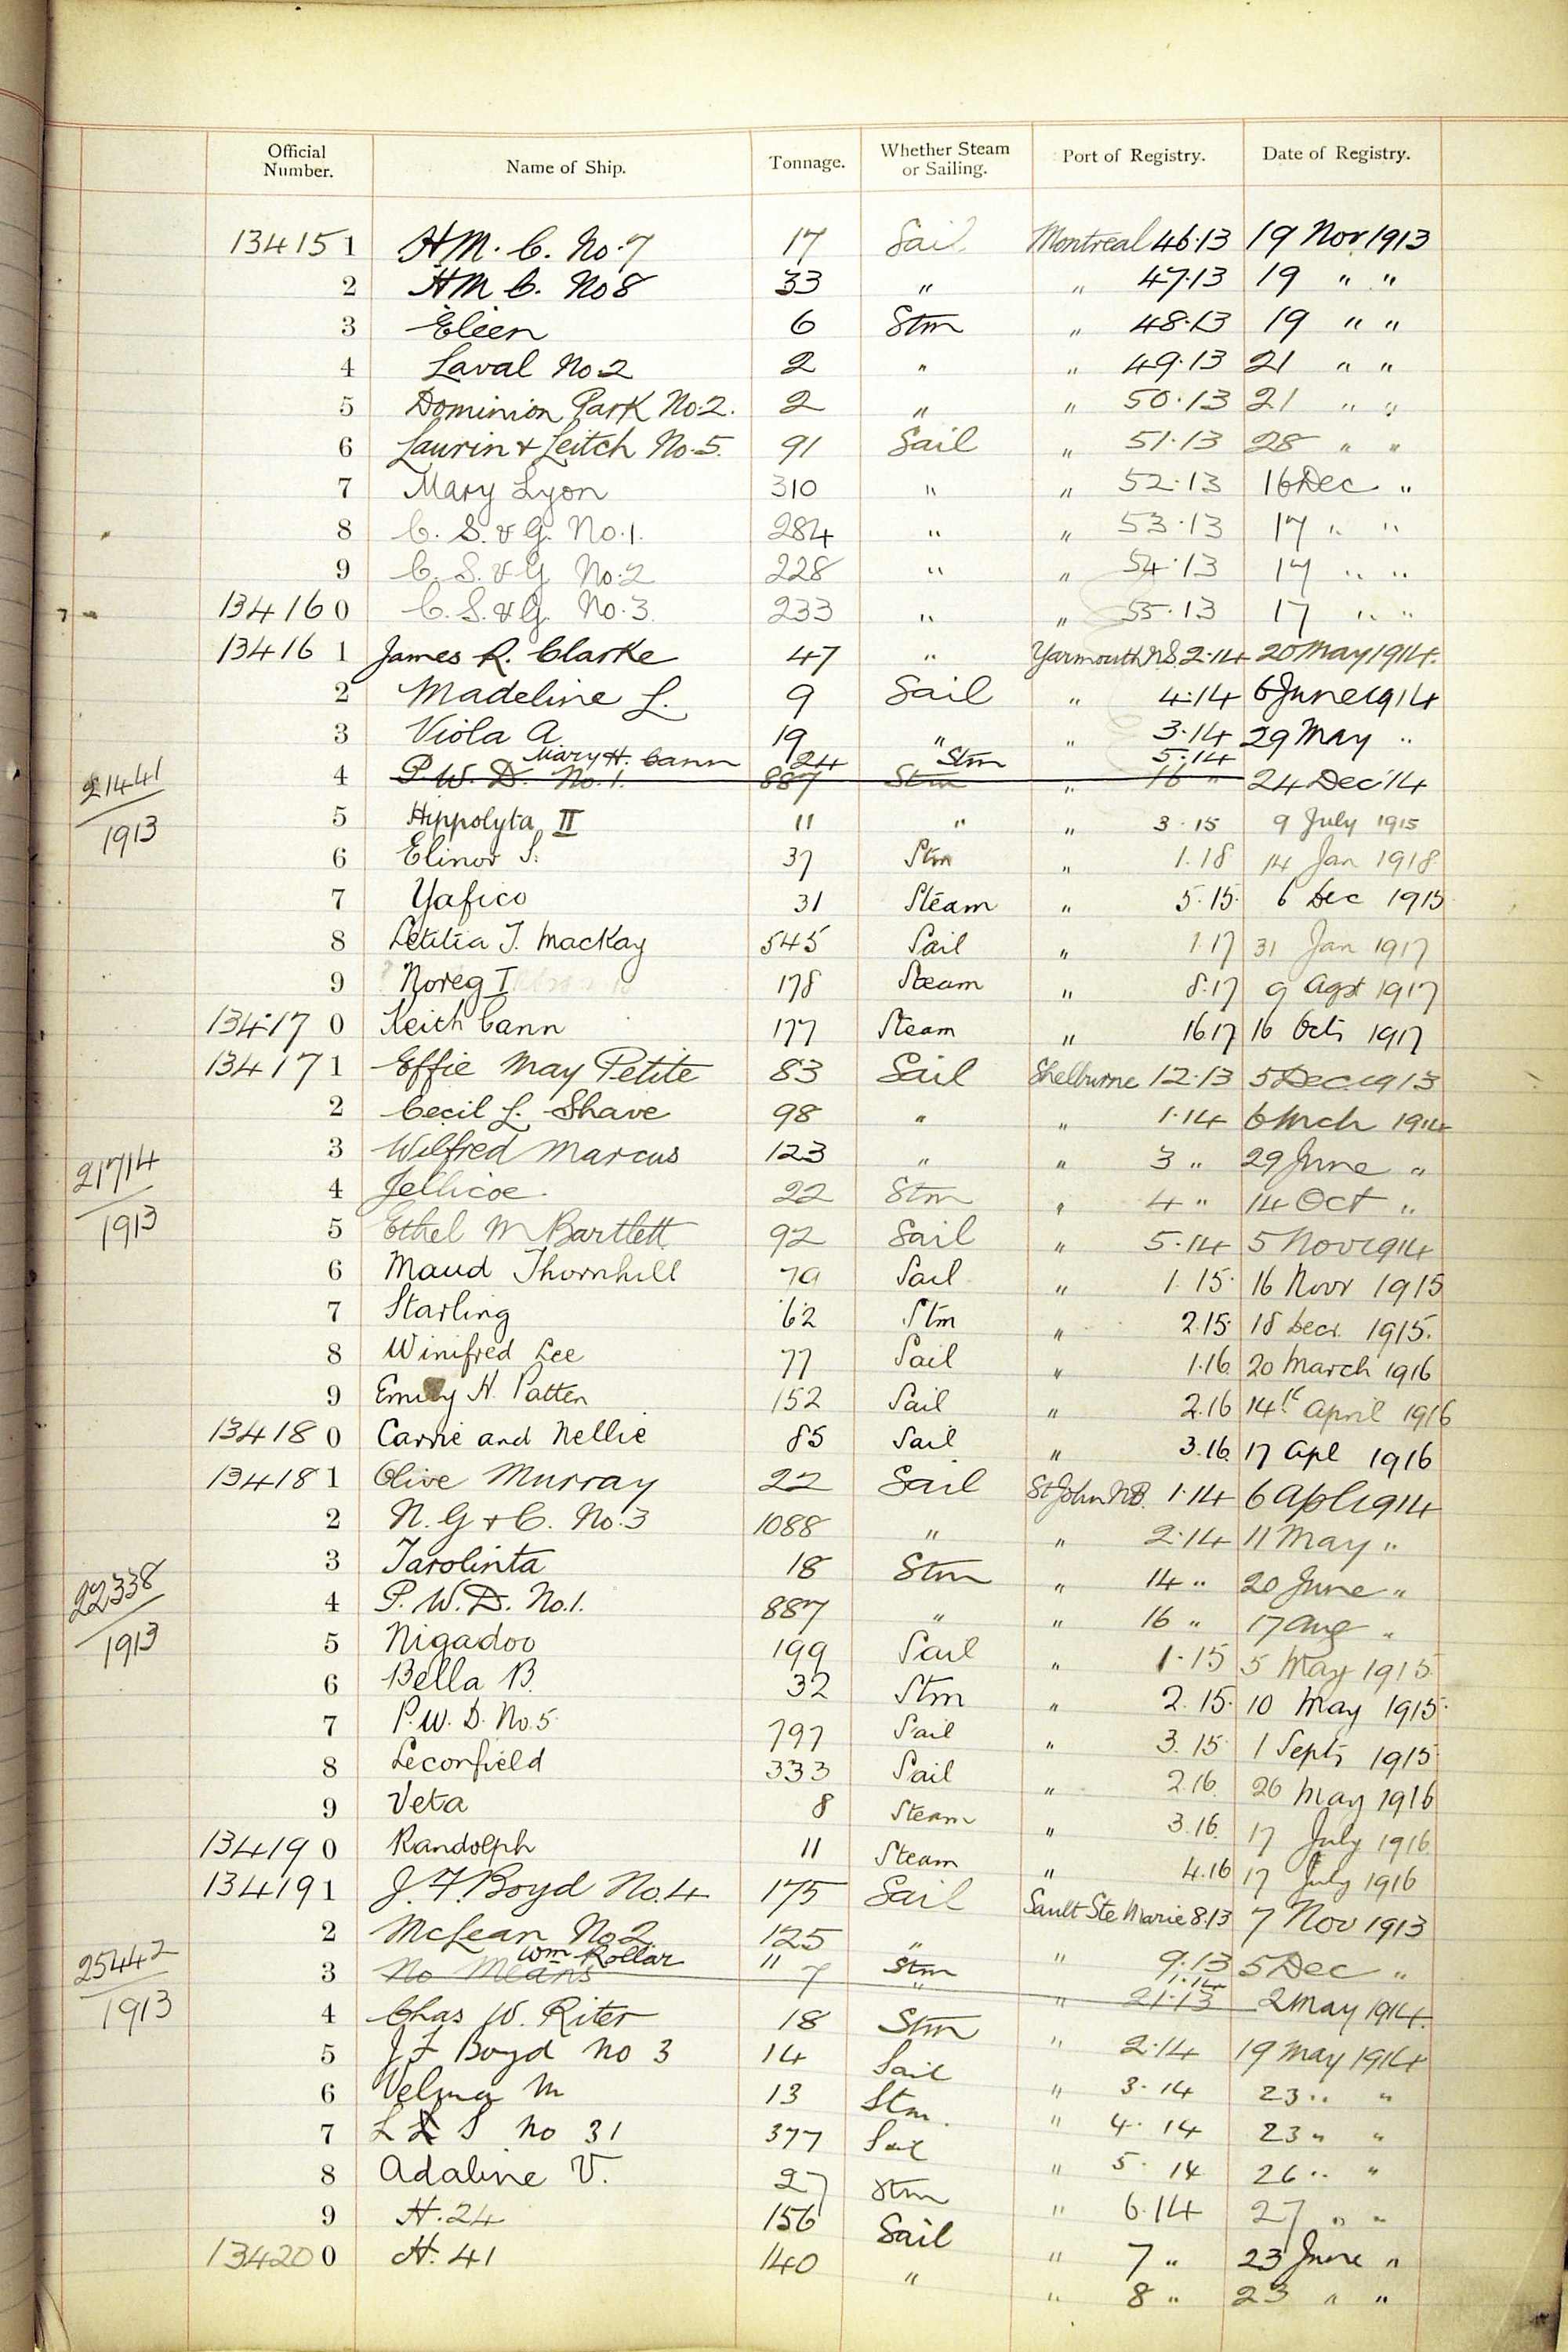 Official Number. Name of Ship. Tonnage. Whether Steam or Sailing. Port of Registry. Date of Registry.
134151 H.M. C. No. 7 17 Sail Montreal 46.13 19 Nov 1913
2 H M C. No 8 33 " " 47.13 19 " "
3 Eleen 6 Stm " 48.13 19 " "
4 Laval No 2 2 " " 49.13 21 " "
5 Dominion Park No. 2. 2 " " 50.13 21 " "
6 Laurin & Leitch No. 5. 91 Sail " 51.13 28 " "
7 Mary Lyon 310 " " 52.13 16 Dec "
8 C. S. & G. No. 1. 284 " " 53.13 17 " "
9 C. S. & G. No. 2 228 " " 54.13 17 " "
134160 C. S. & G. No. 3 233 " " 55.13 17 " "
134161 James R. Clarke 47 " Yarmouth N.S. 2.14 20 May 1914.
2 Madeline L. 9 Sail " 4.14 6 June 1914
3 Viola A 19 " " 3.14 29 May "
Mary H. Cann 24 Stm 5.14
21441 4 P. W. D. No. 1. 887 Stm " 16 " 24 Dec 14
1913 5 Hippolyta II 11 " " 3.15 9 July 1915
6 Elinor S. 37 Stm " 1.18 14 Jan 1918
7 Yafico 31 Steam " 5.15. 6 Dec 1915
8 Letitia J. Mackay 545 Sail " 1.17 31 Jan 1917
9 Noreg I 178 Steam " 8.17 9 Agst 1917
134170 Keith Cann 177 Steam " 16 17 16 Oct 1917
134171 Effie May Petite 83 Sail Shelburne 12.13 5 Dec. 1913
2 Cecil L. Shave 98 " " 1.14 6 Mch 1914
3 Wilfred Marcus 123 " " 3 " 29 June "
21714 4 Jellicoe 22 Stm " 4 " 14 Oct "
1913 5 Ethel M Bartlett 92 Sail " 5.14 5 Nov 1914
6 Maud Thornhill 79 Sail " 1.15. 16 Novr 1915
7 Starling 62 Stm " 2.15. 18 Decr. 1915.
8 Winifred Lee 77 Sail " 1.16 20 March 1916
9 Emily H. Patten 152 Sail " 2.16 14th April 1916
134180 Carrie and Nellie 85 Sail " 3.16. 17 Apl 1916
134181 Olive Murray 22 Sail St John N.B. 1.14 6 Apl 1914
2 N. G & C. No. 3 1088 " " 2.14 11 May "
3 Tarolinta 18 Stm " 14 " 20 June "
22338 4 P. W. D. No. 1. 887 " " 16 " 17 Aug "
1913 5 Nigadoo 199 Sail " 1.15 5 May 1915
6 Bella B. 32 Stm " 2.15. 10 May 1915.
7 P. W. D. No. 5 797 Sail " 3.15 1 Sept, 1915
8 Leconfield 333 Sail " 2.16. 26 May 1916
9 Veta 8 Steam " 3.16. 17 July 1916
134190 Randolph 11 Steam " 4.16 17 July 1916
134191 J. F. Boyd No. 4 175 Sail Sault Ste Marie 8.13 7 Nov 1913
2 McLean No 2 125 " " 9.13 5 Dec "
Wm Rollar 11 Stm 1.14
25442 3 No Means 7 " " 21.13 2 May 1914.
1913 4 Chas W. Riter 18 Stm " 2.14 19 May 1914
5 J F Boyd No 3 14 Sail " 3.14 23 " "
6 Velma M 13 Stm. " 4.14 23 " "
7 L L S No 31 377 Sail " 5.14 26 " "
8 Adaline V. 27 Stm " 6.14 27 " "
9 H. 24 156 Sail " 7 " 23 June "
134200 H. 41 140 " " 8 " 23 " "